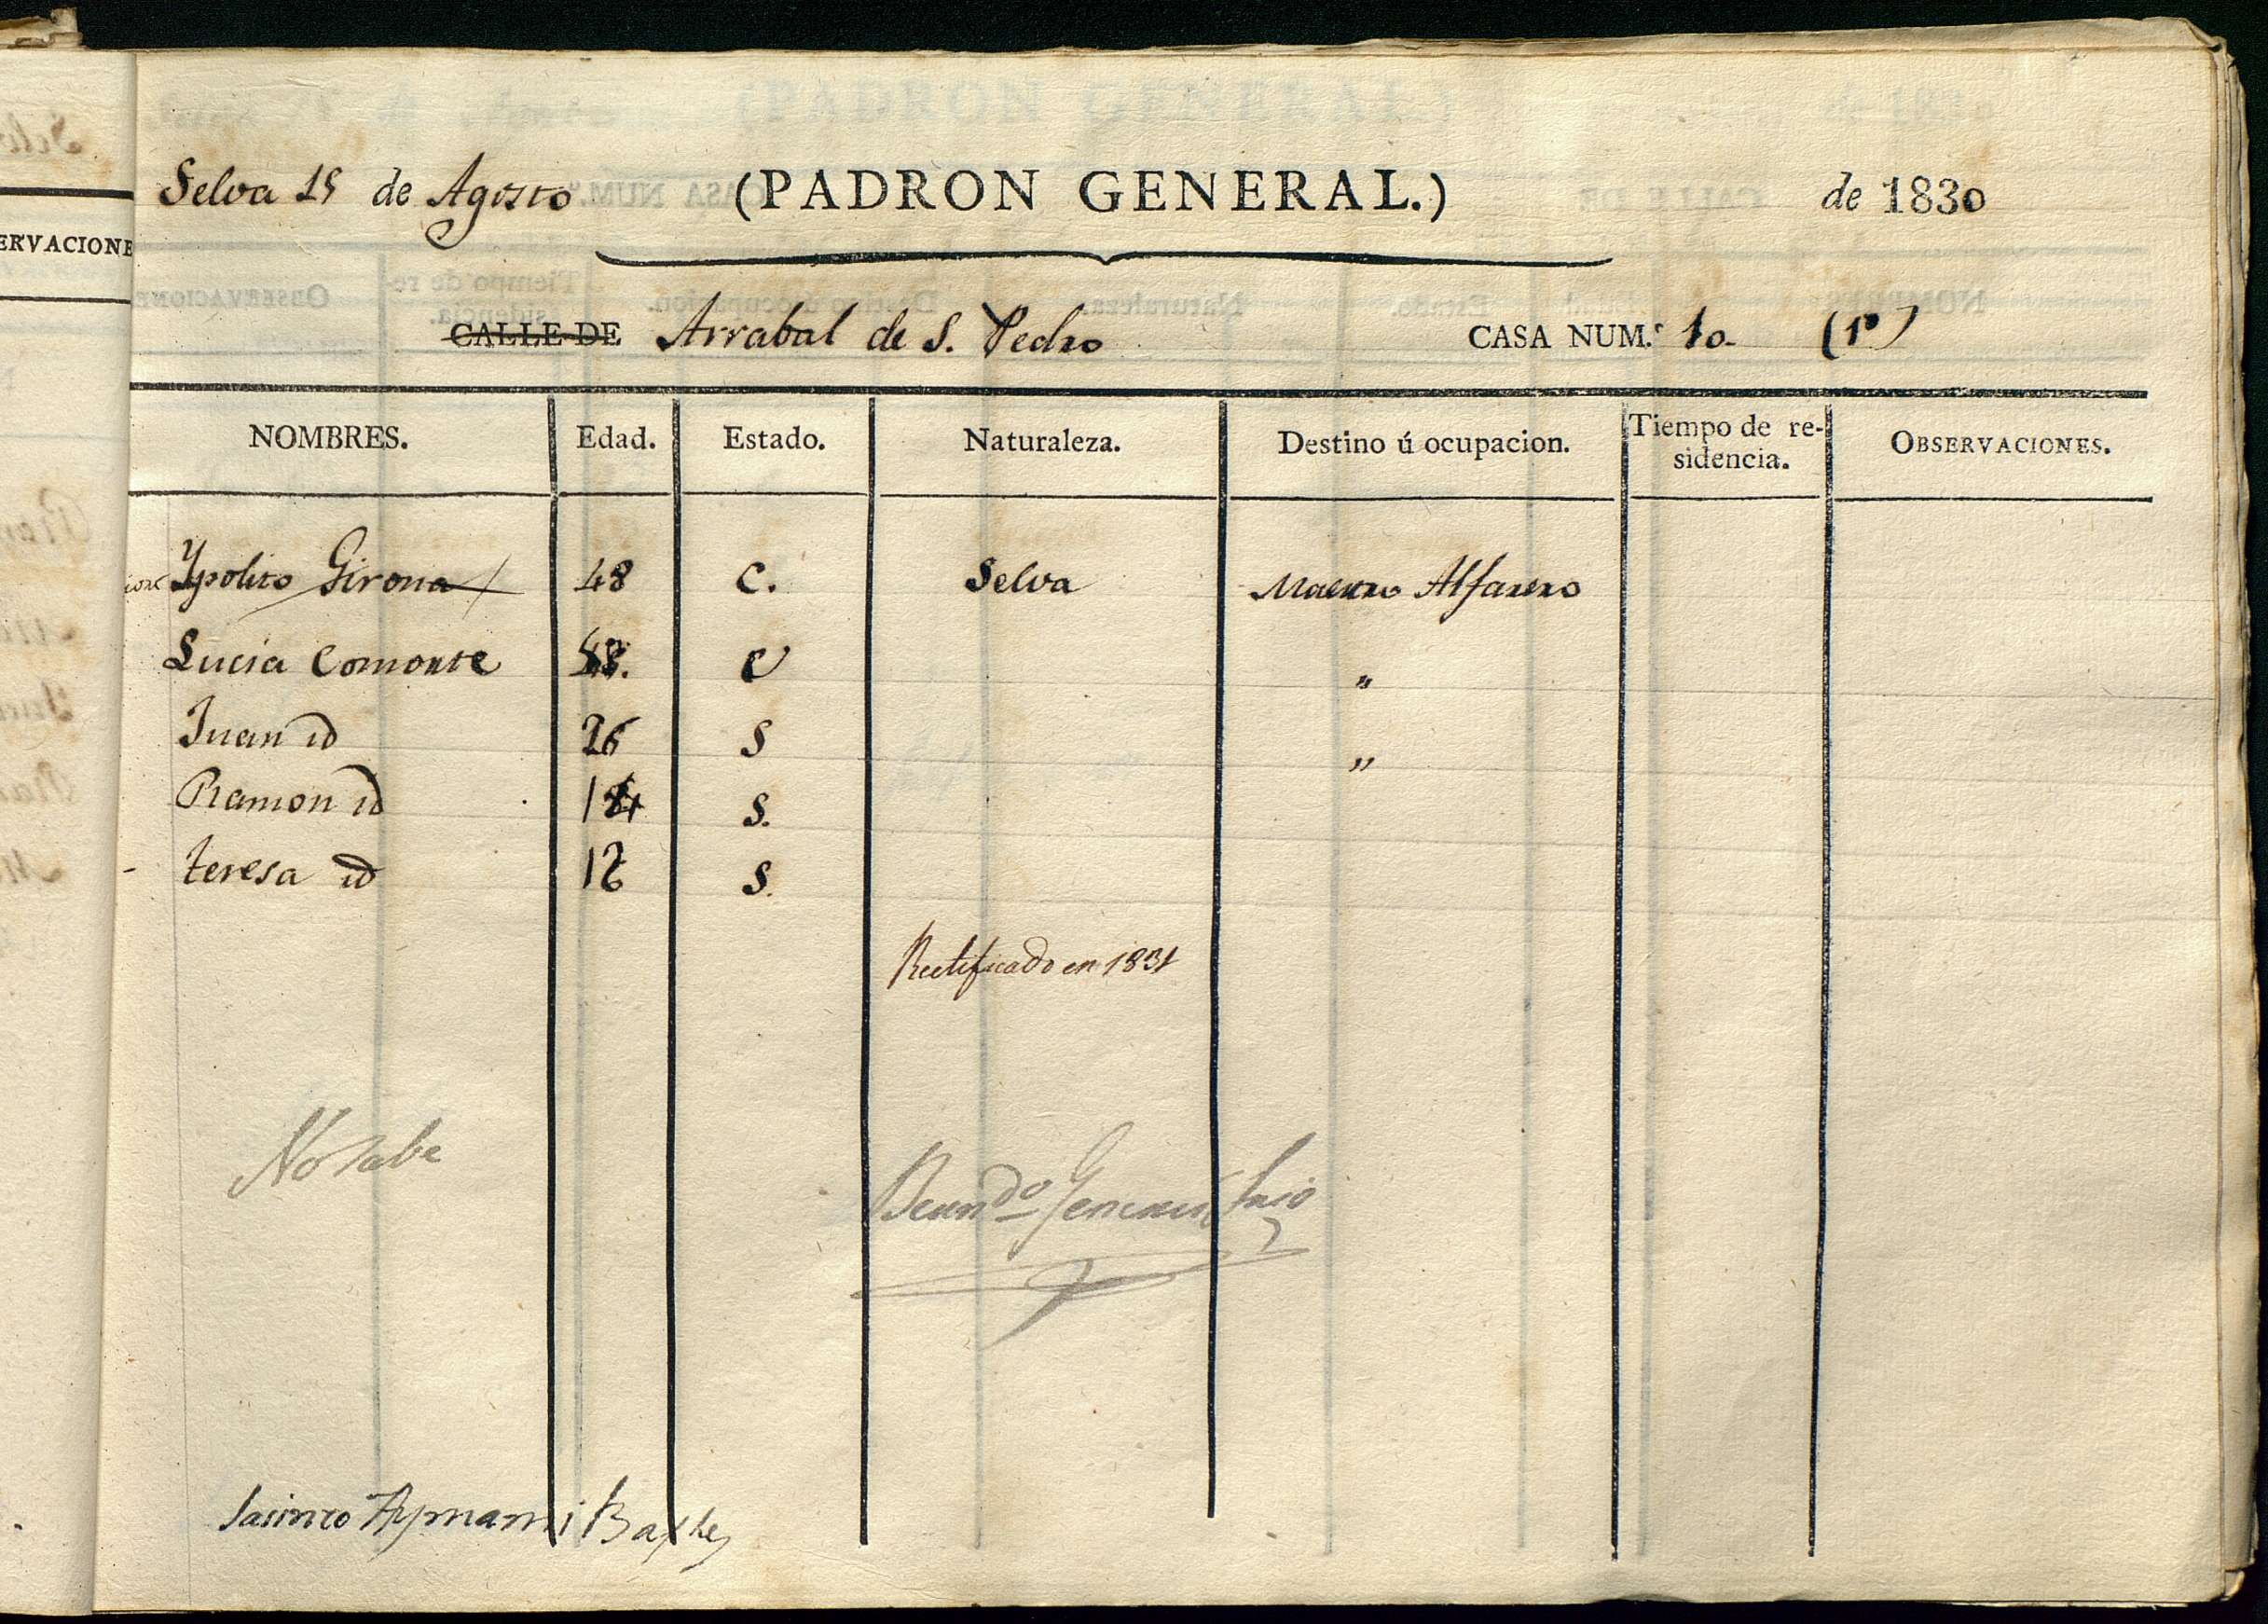 Selva 15 de Agosto (PADRON GENERAL.) de 1830
CALLE DE Arrabal de S. Pedro CASA NUM.º 10. (1º)
NOMBRES. Edad. Estado. Naturaleza. Destino ú ocupacion. Tiempo de re-sidencia. OBSERVACIONES.
Ypolito Girona 48 C. Selva Maestro Alfarero
Lucia Comonte C "
Juan id 26 S "
Ramon id S.
Teresa id S.
Rectificado en 1831
No sabe
Jacinto Aymami
ERVACIONE